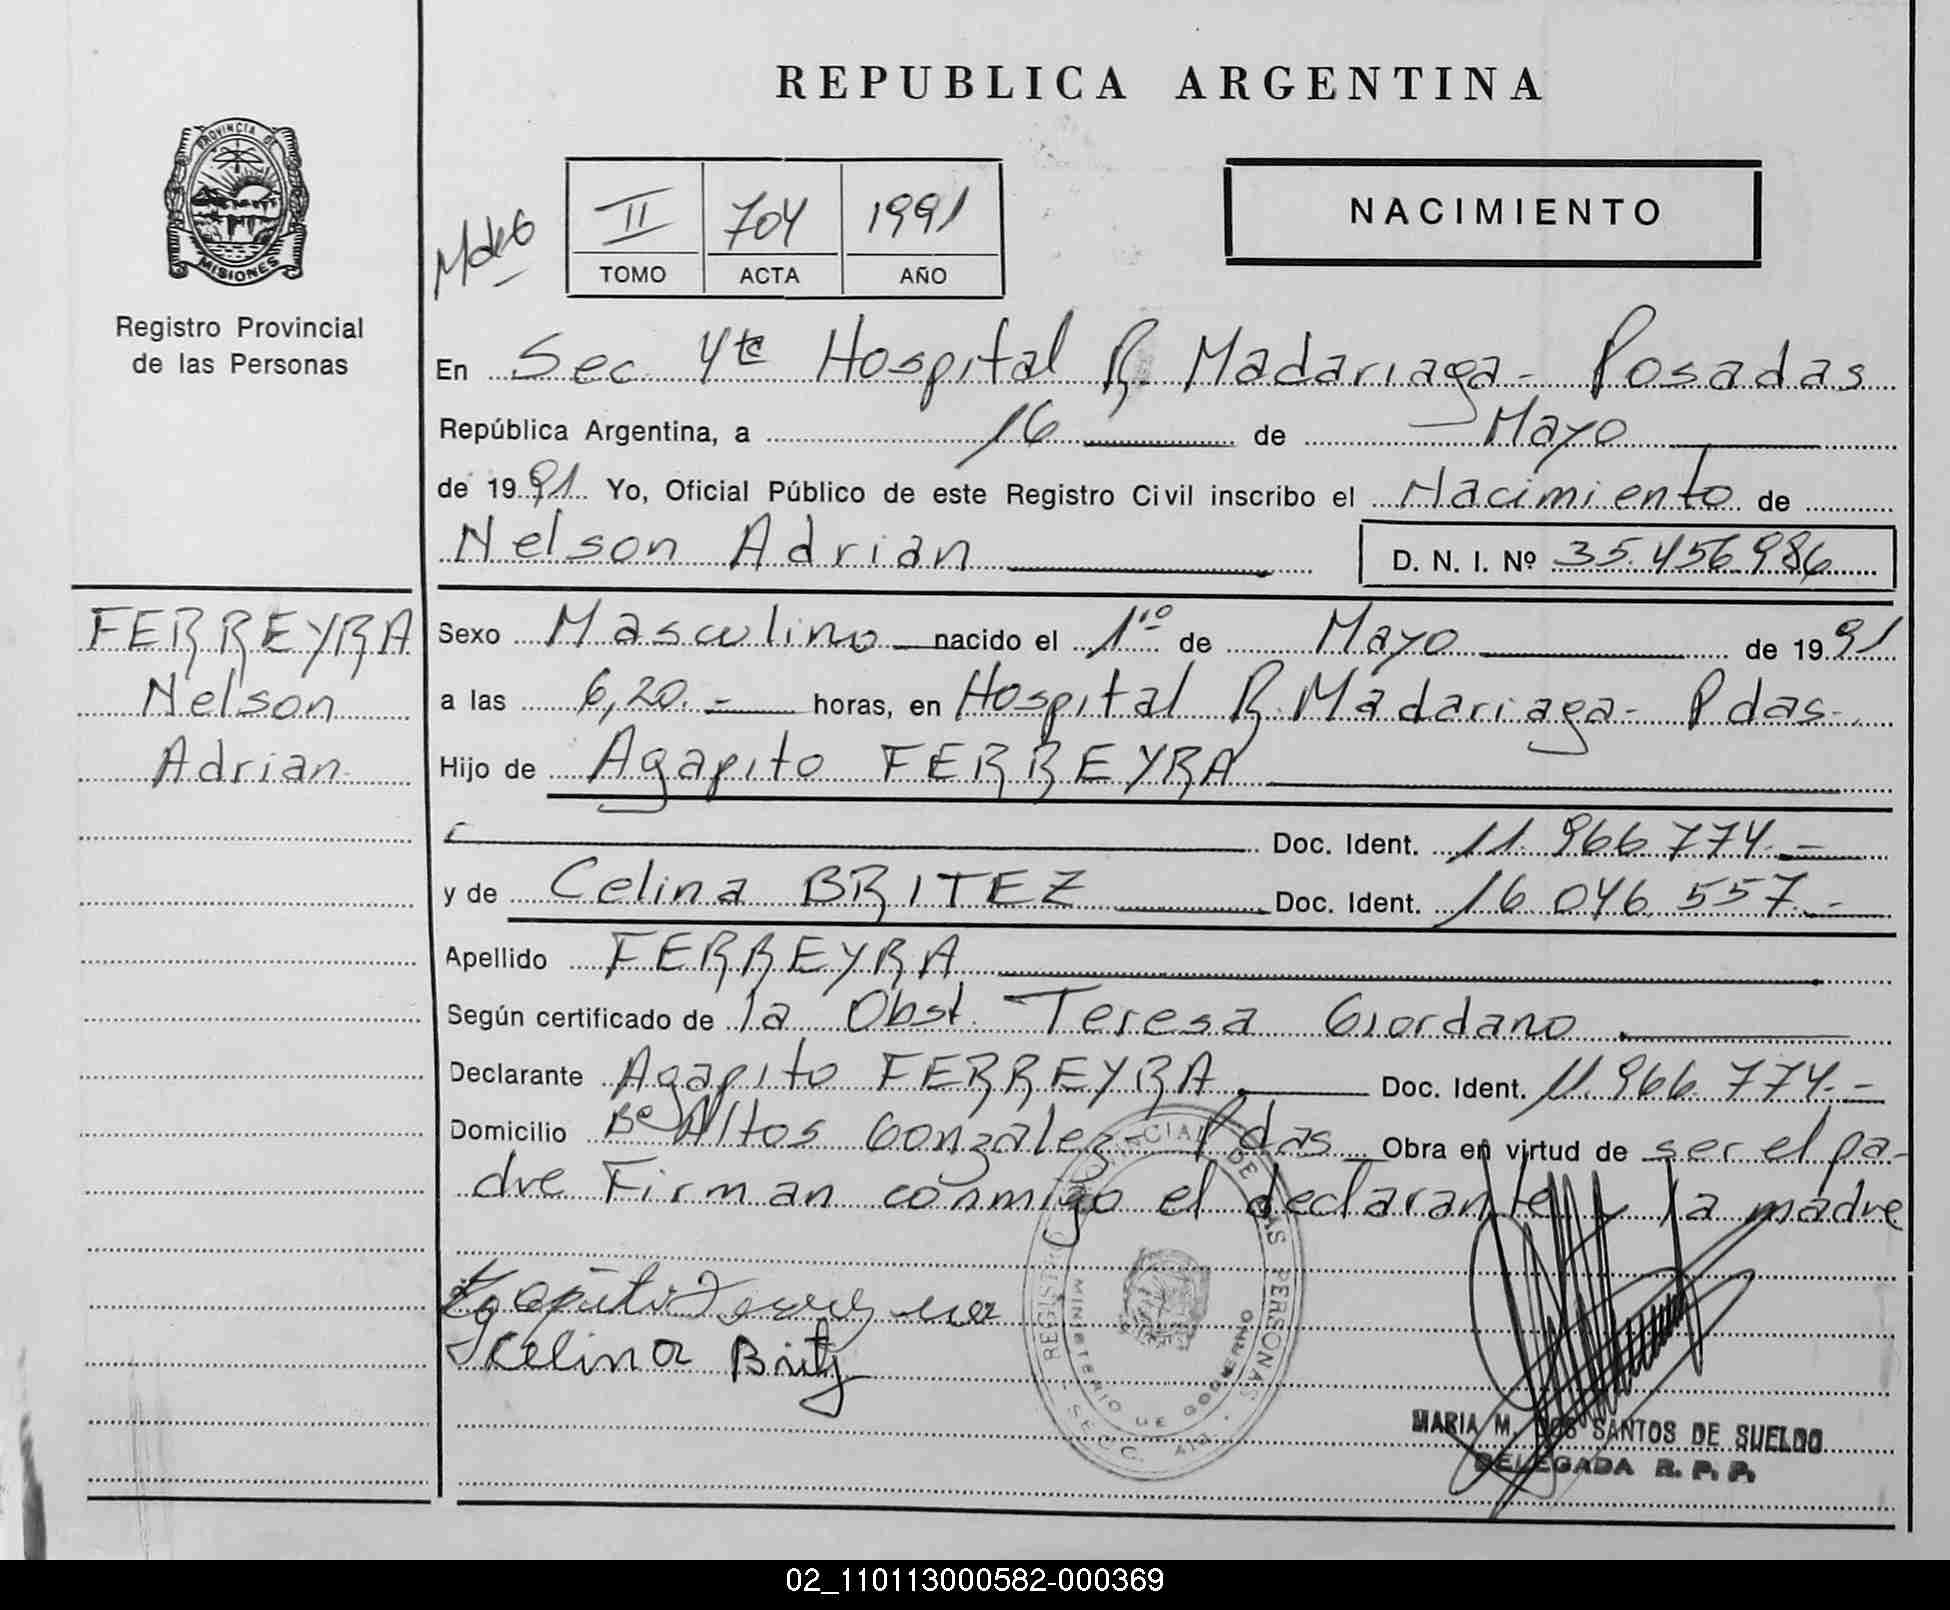 REPUBLICA ARGENTINA
PROVINCIA DE
MISIONES
Registro Provincial
de las Personas
II 704 1991
TOMO ACTA AÑO
NACIMIENTO
En Sec 4ta Hospital R. Madariaga - Posadas
República Argentina, a 16 de Mayo
de 1991 Yo, Oficial Público de este Registro Civil inscribo el Nacimiento de
Nelson Adrian D. N. I. Nº 35.456.986
FERREYRA
Nelson
Adrian
Sexo Masculino nacido el 1ro de Mayo de 1991
a las 6,20.- horas, en Hospital R. Madariaga - Pdas-
Hijo de Agapito FERREYRA
Doc. Ident. 11.966.774.-
y de Celina BRITEZ Doc. Ident. 16.046.557.-
Apellido FERREYRA
Según certificado de la Obst. Teresa Giordano
Declarante Agapito FERREYRA Doc. Ident. 11.966.774.-
Domicilio Bº Altos Gonzalez Pdas Obra en virtud de ser el pa-
dre Firman conmigo el declarante y la madre
Agapito Ferreyra
Celina Britez
REGISTRO PROVINCIAL DE LAS PERSONAS
MINISTERIO DE GOBIERNO
SECC. 4ta
MARIA M. DOS SANTOS DE SUELDO
DELEGADA R. P. P.
02_110113000582-000369